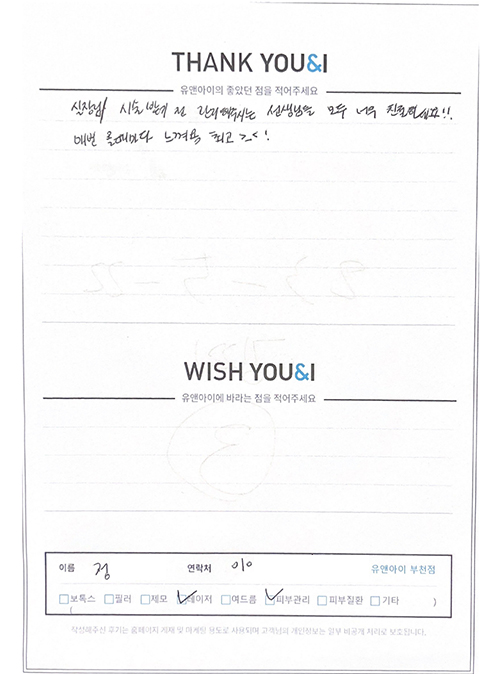 THANK YOU&I
유앤아이의 좋았던 점을 적어주세요
실장님 시술 받게 전 관리해주시는 선생님들 모두 너무 친절하세요!!
매번 올때마다 느껴요 최고 >.< !
WISH YOU&I
유앤아이에 바라는 점을 적어주세요
이름 정 연락처 010 유앤아이 부천점
보톡스 필러 제모 레이저 여드름 피부관리 피부질환 기타
( )
작성해주신 후기는 홈페이지 게재 및 마케팅 용도로 사용되며 고객님의 개인정보는 일부 비공개 처리로 보호됩니다.